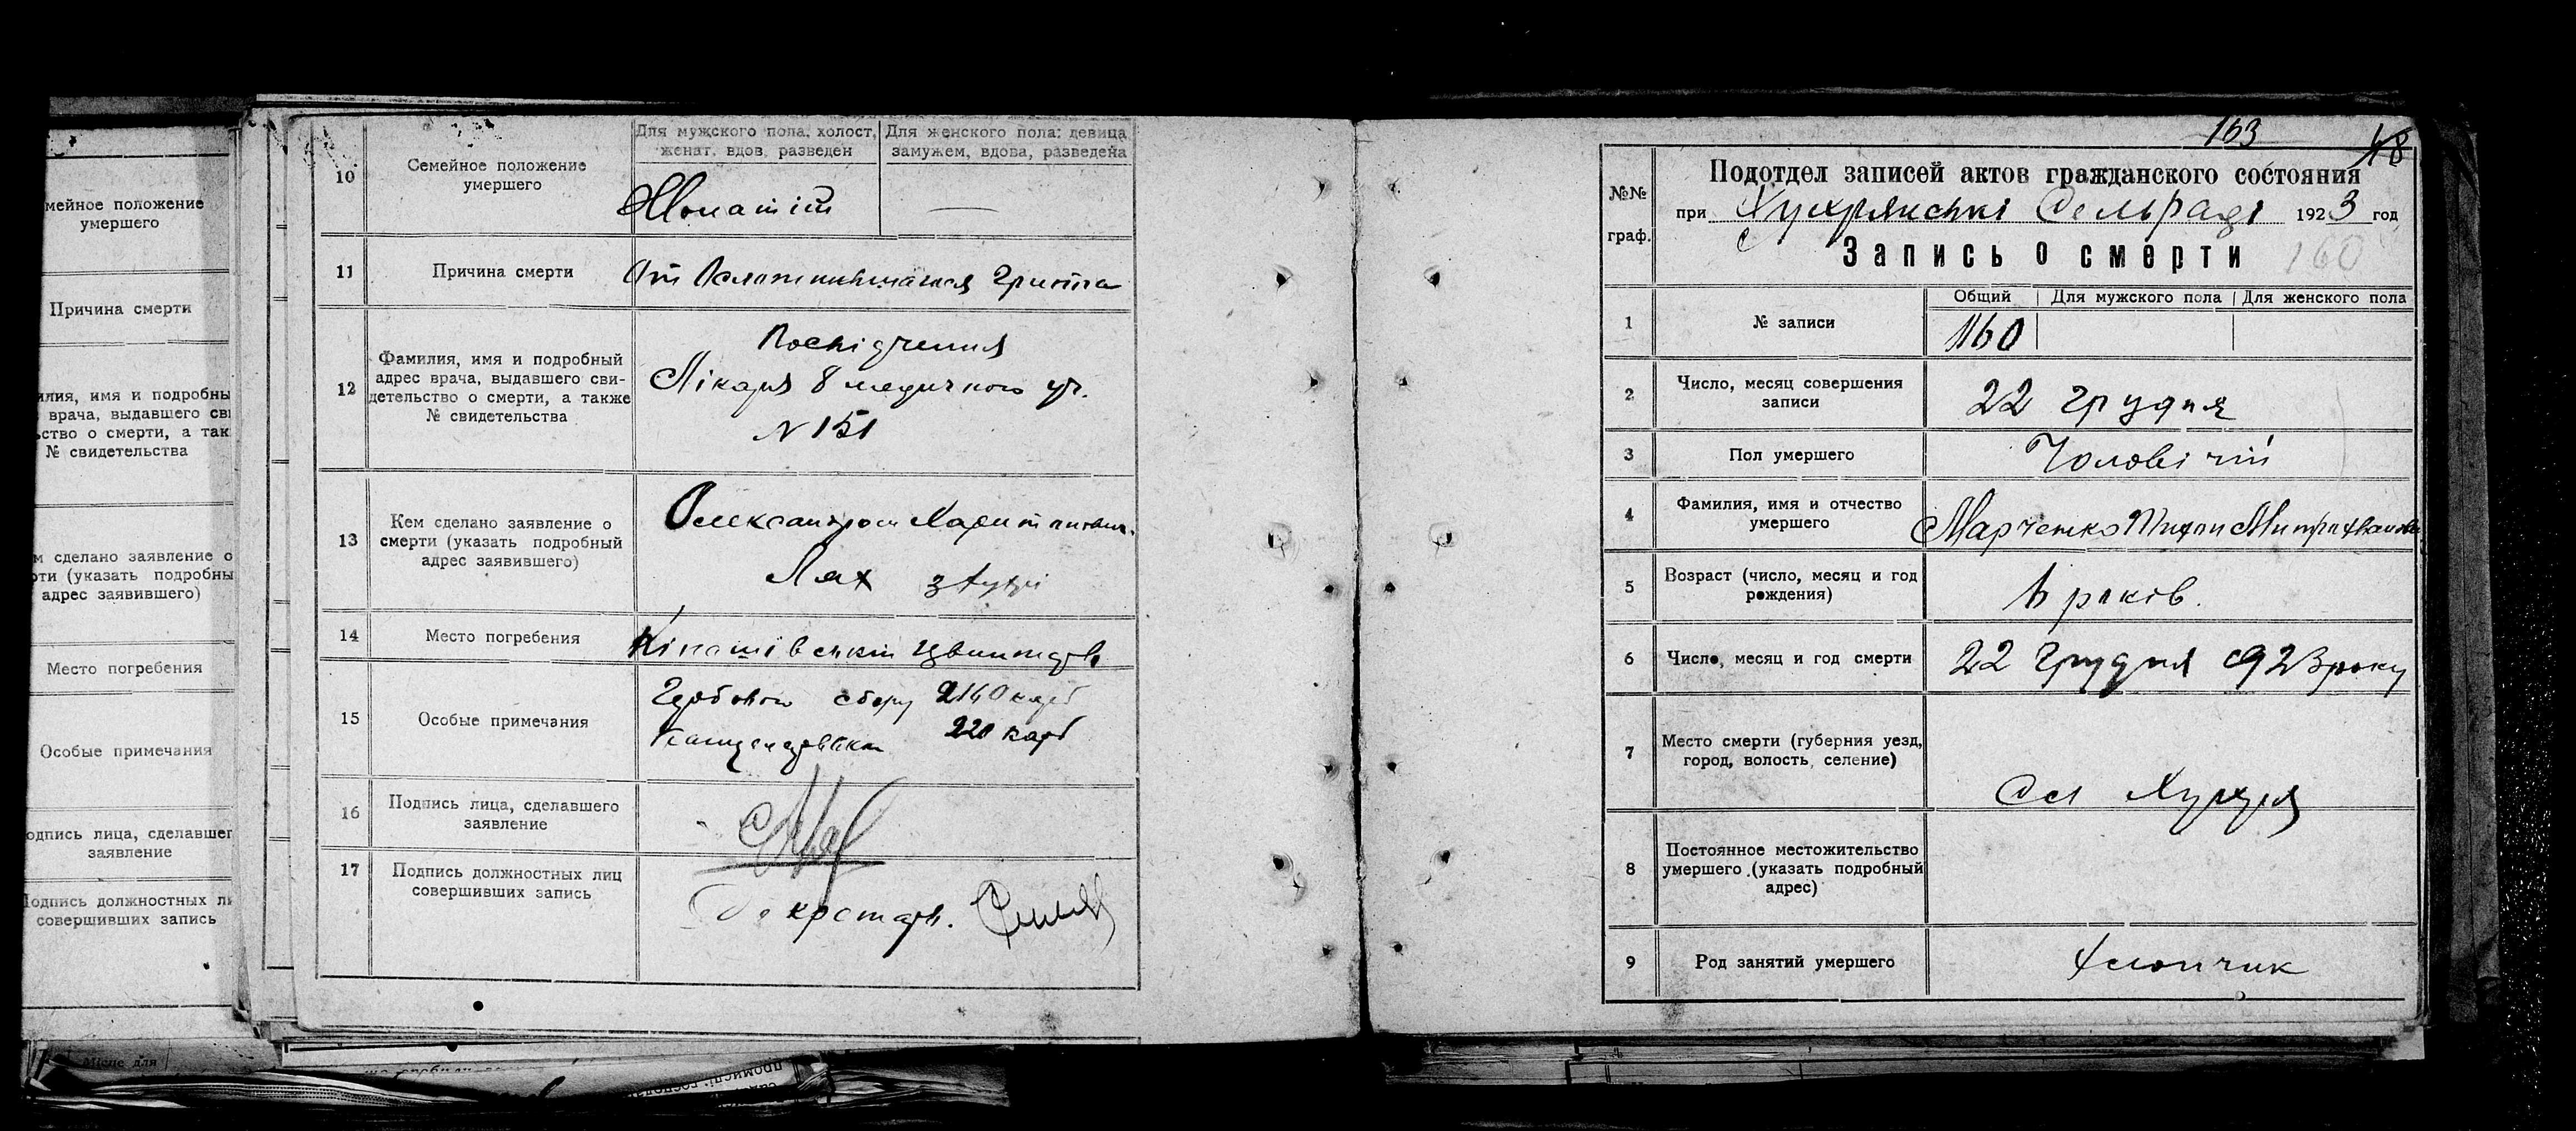 мейное положение
умершего
Причина смерти
илия, имя и подробны
врача, выдавшего сви
ство о смерти, а так
№ свидетельства
м сделано заявление о
рти (указать подробны
адрес заявившего)
Место погребения
Особые примечания
одпись лица, сделавшег
заявление
Подпись должностных ли
совершивших запись
Місце для
10
Семейное положение
умершего
Для мужского пола, холост,
женат, вдов, разведен
Для женского пола: девица
замужем, вдова, разведена
Жонатій
—
11
Причина смерти
От Гриппа
12
Фамилия, имя и подробный
адрес врача, выдавшего сви-
детельство о смерти, а также
№ свидетельства
Посвідчення
Лікаря 8 медичного уч.
N 151
13
Кем сделано заявление о
смерти (указать подробный
адрес заявившего)
Олександром
Лях з
14
Место погребения
15
Особые примечания
Гербового сбору 2140 карб
220 карб
16
Подпись лица, сделавшего
заявление
17
Подпись должностных лиц
совершивших запись
Секретарь.
163
№№
граф.
Подотдел записей актов гражданского состояния
при Сельраді 1923 год
Запись о смерти
160
Общий
Для мужского пола
Для женского пола
1
№ записи
160
2
Число, месяц совершения
записи
22 грудня
3
Пол умершего
Чоловічій
4
Фамилия, имя и отчество
умершего
Марченко
5
Возраст (число, месяц и год
рождения)
років.
6
Число, месяц и год смерти
22 Грудня 1923 року
7
Место смерти (губерния уезд,
город, волость, селение)
Сел
8
Постоянное местожительство
умершего (указать подробный
адрес)
9
Род занятий умершего
Хлопчик